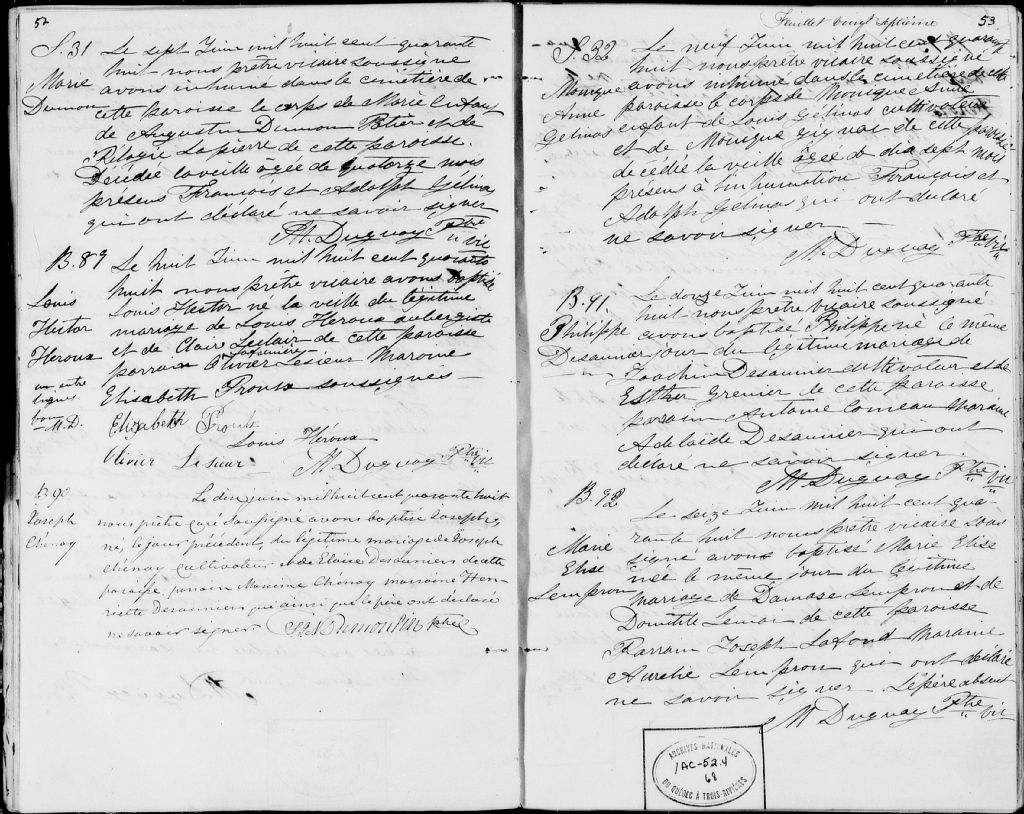 52
S. 31 Le sept Juin mil huit cent quarante
Marie huit nous prêtre vicaire soussigné
Dumon avons inhumé dans le cemetière de
cette paroisse le corps de Marie enfant
de Augustin Dumon Btier et de
Pélagie Lapierre de cette paroisse.
Décédée la veille âgée de quatorze mois
présens François et Adolph Gélinas
qui ont déclaré ne savoir signer
M. Duguay Ptre
" vic
B. 89 Le huit Juin mil huit cent quarante
huit nous prêtre vicaire avons baptisé
Louis Louis Hector né la veille du légitime
Hector mariage de Louis Heroux aubergiste
Heroux et de Claire Leclair de cette paroisse
parrain Olivier Lesieur Maraine
Elisabeth Proulx soussignés
un entre
lignes
bon
M.D.
Elizabeth Proulx
Louis Héroux
Olivier Lesieur M Duguay Ptre
" vic
B 90 Le dix juin mil huit cent quarante huit
Joseph nous prêtre curé soussigné avons baptisé Joseph,
Chénay né, le jour précédent, du légitime mariage de Joseph
Chénay cultivateur et de Eloïse Desauniers de cette
paroisse, parrain Maxime Chénay marraine Hen-
riette Desauniers qui ainsi que le père ont déclaré
ne savoir signer S N Dumoulin Ptre
Feuillet vingt septième 53
S. 32 Le neuf Juin mil huit cent quarante
huit nous prêtre vicaire soussigné
Monique avons inhumé dans le cimetière de cette
Anne paroisse le corps de Monique Anne
Gelinas enfant de Louis Gélinas cultivateur
et de Monique Gignac de cette paroisse
décédée la veille âgée de dix sept mois
présens à l'inhumation François et
Adolph Gelinas qui ont declaré
ne savoir signer
M. Duguay Ptre
" vic
B. 91. Le douze Juin mil huit cent quarante
huit nous prêtre vicaire soussigné
Philippe avons baptisé Philippe né le même
Desaunier jour du légitime mariage de
Joachim Desaunier cultivateur et de
Esther Grenier de cette paroisse
parain Antoine Comeau Maraine
Adelaïde Desaunier qui ont
déclaré ne savoir signer.
M Duguay Ptre
" vic
B. 92 Le seize Juin mil huit cent qua-
rante huit nous prêtre vicaire sous
Marie signé avons baptisé Marie Elise
Elise née le même jour du légitime
Lempron mariage de Damase Lempron et de
Domitile Lemai de cette paroisse
Parrain Joseph Lafond Maraine
Aurelie Lempron qui ont déclaré
ne savoir signer. Le père absent
M Duguay Ptre
" vic
ARCHIVES NATIONALES
1AC-52.4
68
DU QUÉBEC À TROIS-RIVIÈRES